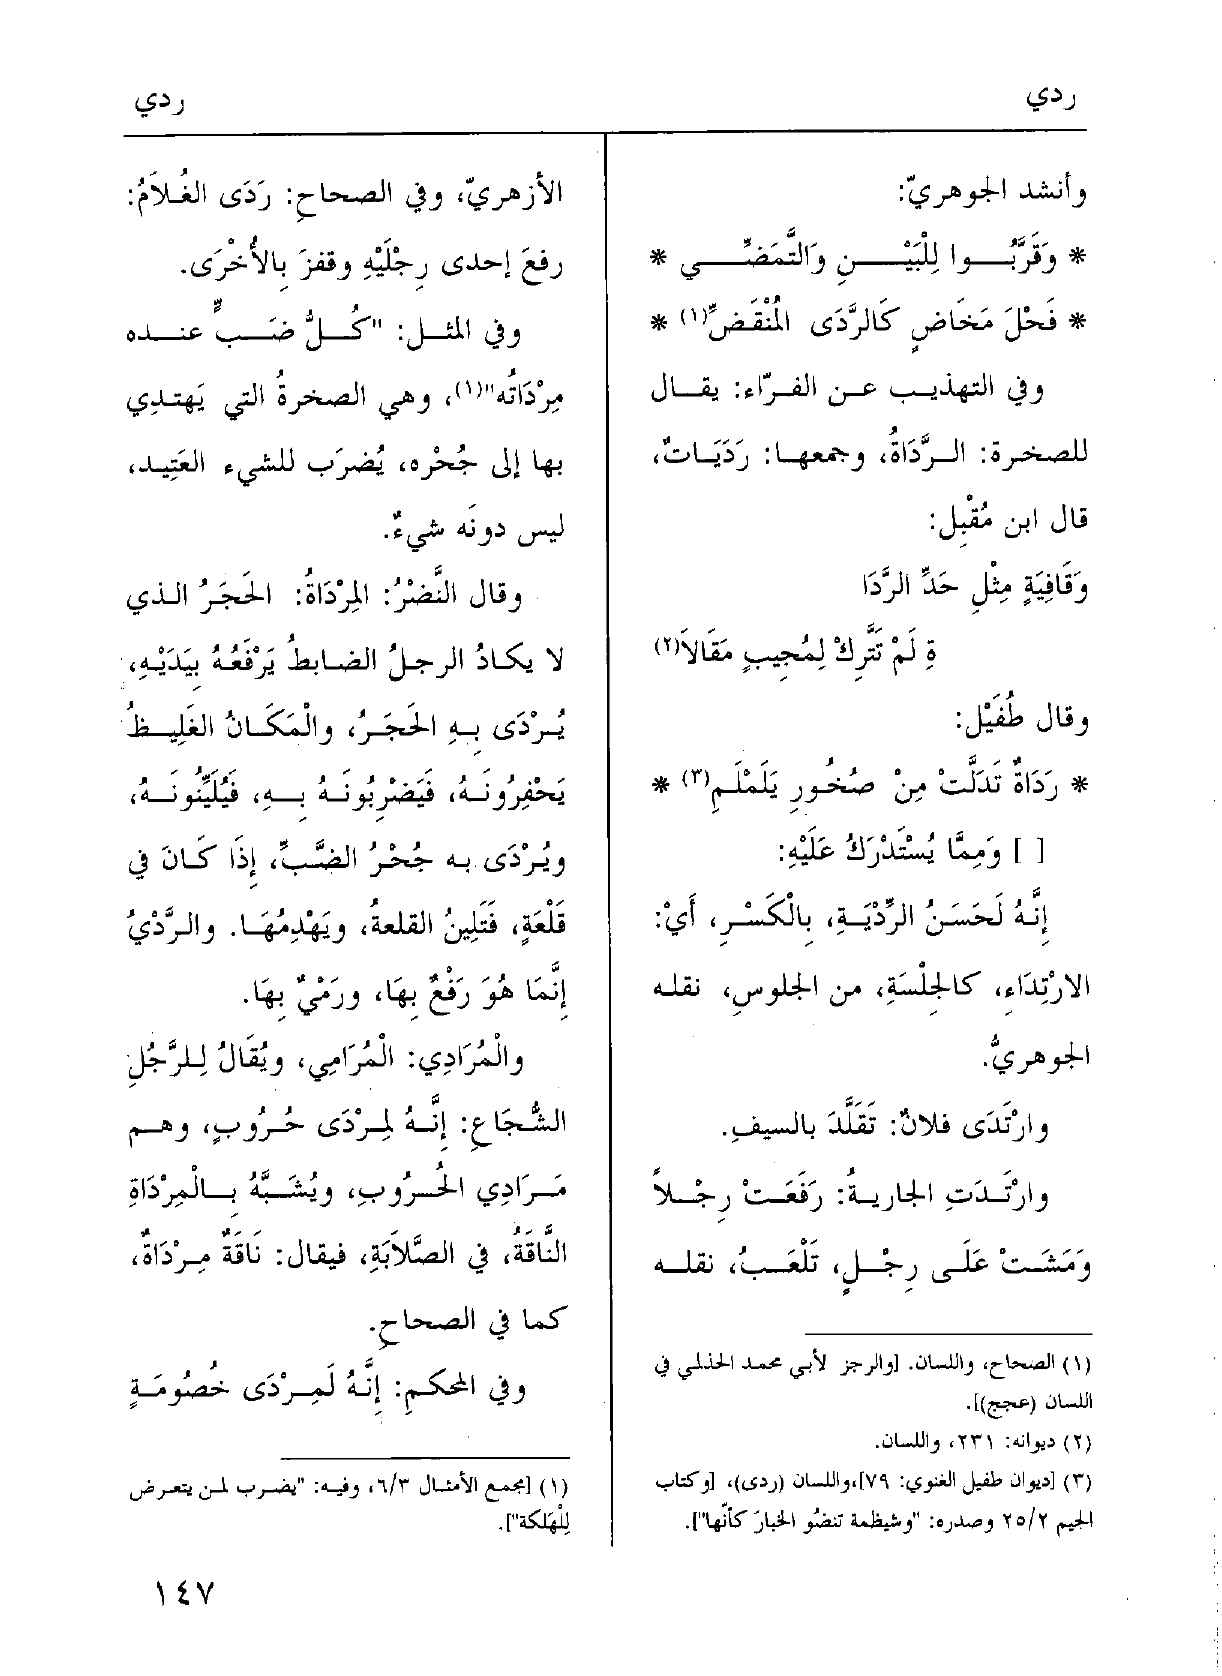 ردي
ردي
وأنشد الجوهريّ:
* وَقَرَّبُــوا لِلْبَيْــنِ وَالتَّمَضِّــي *
* فَحْلَ مَخَاضٍ كَالرَّدَى الْمُنْقَضِّ(١) *
وفي التهذيب عن الفرّاء: يقال
للصخرة: الرَّدَاةُ، وجمعها: رَدَيَاتٌ،
قال ابن مُقْبِل:
وَقَافِيَةٍ مِثْلِ حَدِّ الرَّدَا
ةِ لَمْ تَتَّرِكْ لِمُجِيبٍ مَقَالاَ(٢)
وقال طُفَيْل:
* رَدَاةٌ تَدَلَّتْ مِنْ صُخُورِ يَلَمْلَمِ(٣) *
[ ] وَمِمَّا يُسْتَدْرَكُ عَلَيْهِ:
إِنَّهُ لَحَسَنُ الرِّدْيَةِ، بِالْكَسْرِ، أَيْ:
الارْتِدَاءِ، كَالجِلْسَةِ، من الجلوسِ، نقله
الجوهريُّ.
وارْتَدَى فلانٌ: تَقَلَّدَ بالسيفِ.
وارْتَدَتِ الجاريةُ: رَفَعَتْ رِجْلاً
وَمَشَتْ عَلَى رِجْلٍ، تَلْعَبُ، نقله
(١) الصحاح، واللسان. [والرجز لأبي محمد الحذلمي في
اللسان (عجج)].
(٢) ديوانه: ٢٣١، واللسان.
(٣) [ديوان طفيل الغنوي: ٧٩]،واللسان (ردى)، [وكتاب
الجيم ٢٥/٢ وصدره: "وشيظمة تنضُو الخبارَ كأنّها"].
الأزهريّ، وفي الصحاح: رَدَى الغُلاَمُ:
رفعَ إحدى رِجْلَيْهِ وقفزَ بِالأُخْرَى.
وفي المثل: "كُلُّ ضَبٍّ عنده
مِرْدَاتُه"(١)، وهي الصخرةُ التي يَهتدِي
بها إلى جُحْرِه، يُضرَب للشيء العَتِيد،
ليس دونَه شيءٌ.
وقال النَّضْرُ: المِرْدَاةُ: الحَجَرُ الذي
لا يكادُ الرجلُ الضابطُ يَرْفَعُهُ بِيَدَيْهِ،
يُرْدَى بِهِ الحَجَرُ، والْمَكَانُ الغَلِيظُ
يَحْفِرُونَهُ، فَيَضْرِبُونَهُ بِهِ، فَيُلَيِّنُونَهُ،
ويُرْدَى به جُحْرُ الضَّبِّ، إِذَا كَانَ في
قَلْعَةٍ، فَتَلِينُ القلعةُ، ويَهْدِمُهَا. والرَّدْيُ
إِنَّمَا هُوَ رَفْعٌ بِهَا، ورَمْيٌ بِهَا.
والْمُرَادِي: الْمُرَامِي، ويُقَالُ لِلرَّجُلِ
الشُّجَاعِ: إِنَّهُ لَمِرْدَى حُرُوبٍ، وهم
مَرَادِي الحُرُوبِ، ويُشَبَّهُ بِالْمِرْدَاةِ
النَّاقَةُ، في الصَّلاَبَةِ، فيقال: نَاقَةٌ مِرْدَاةٌ،
كما في الصحاح.
وفي المحكمِ: إِنَّهُ لَمِرْدَى خُصُومَةٍ
(١) [مجمع الأمثال ٦/٣، وفيه: "يضرب لمن يتعرض
لِلْهَلَكَة"].
١٤٧